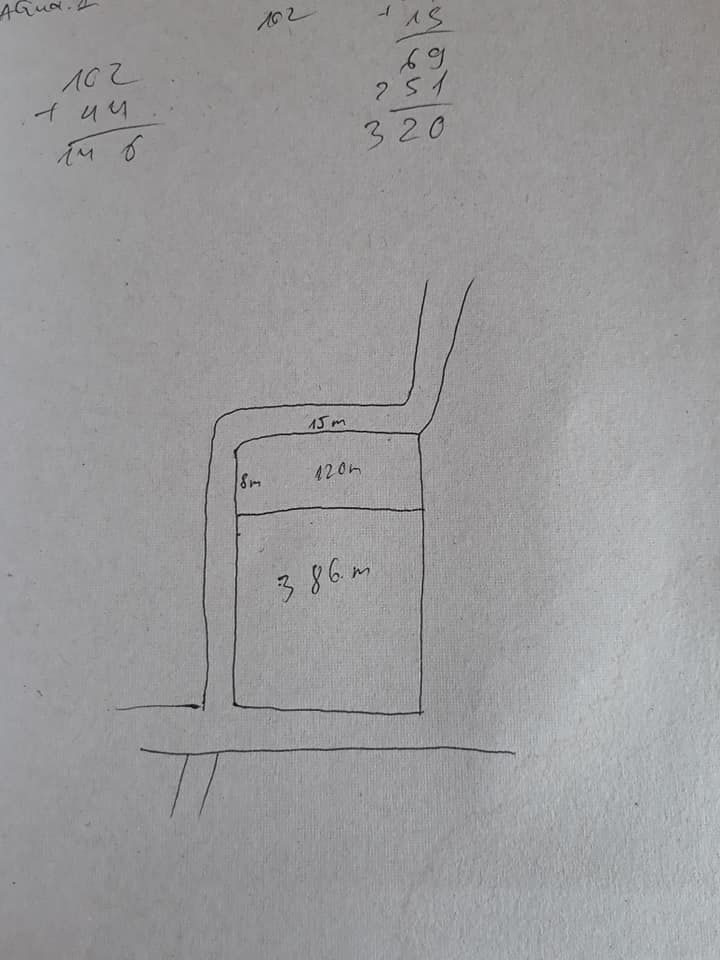 102
+ 15
69
251
320
102
+ 44
146
15m
8m
120m
386.m